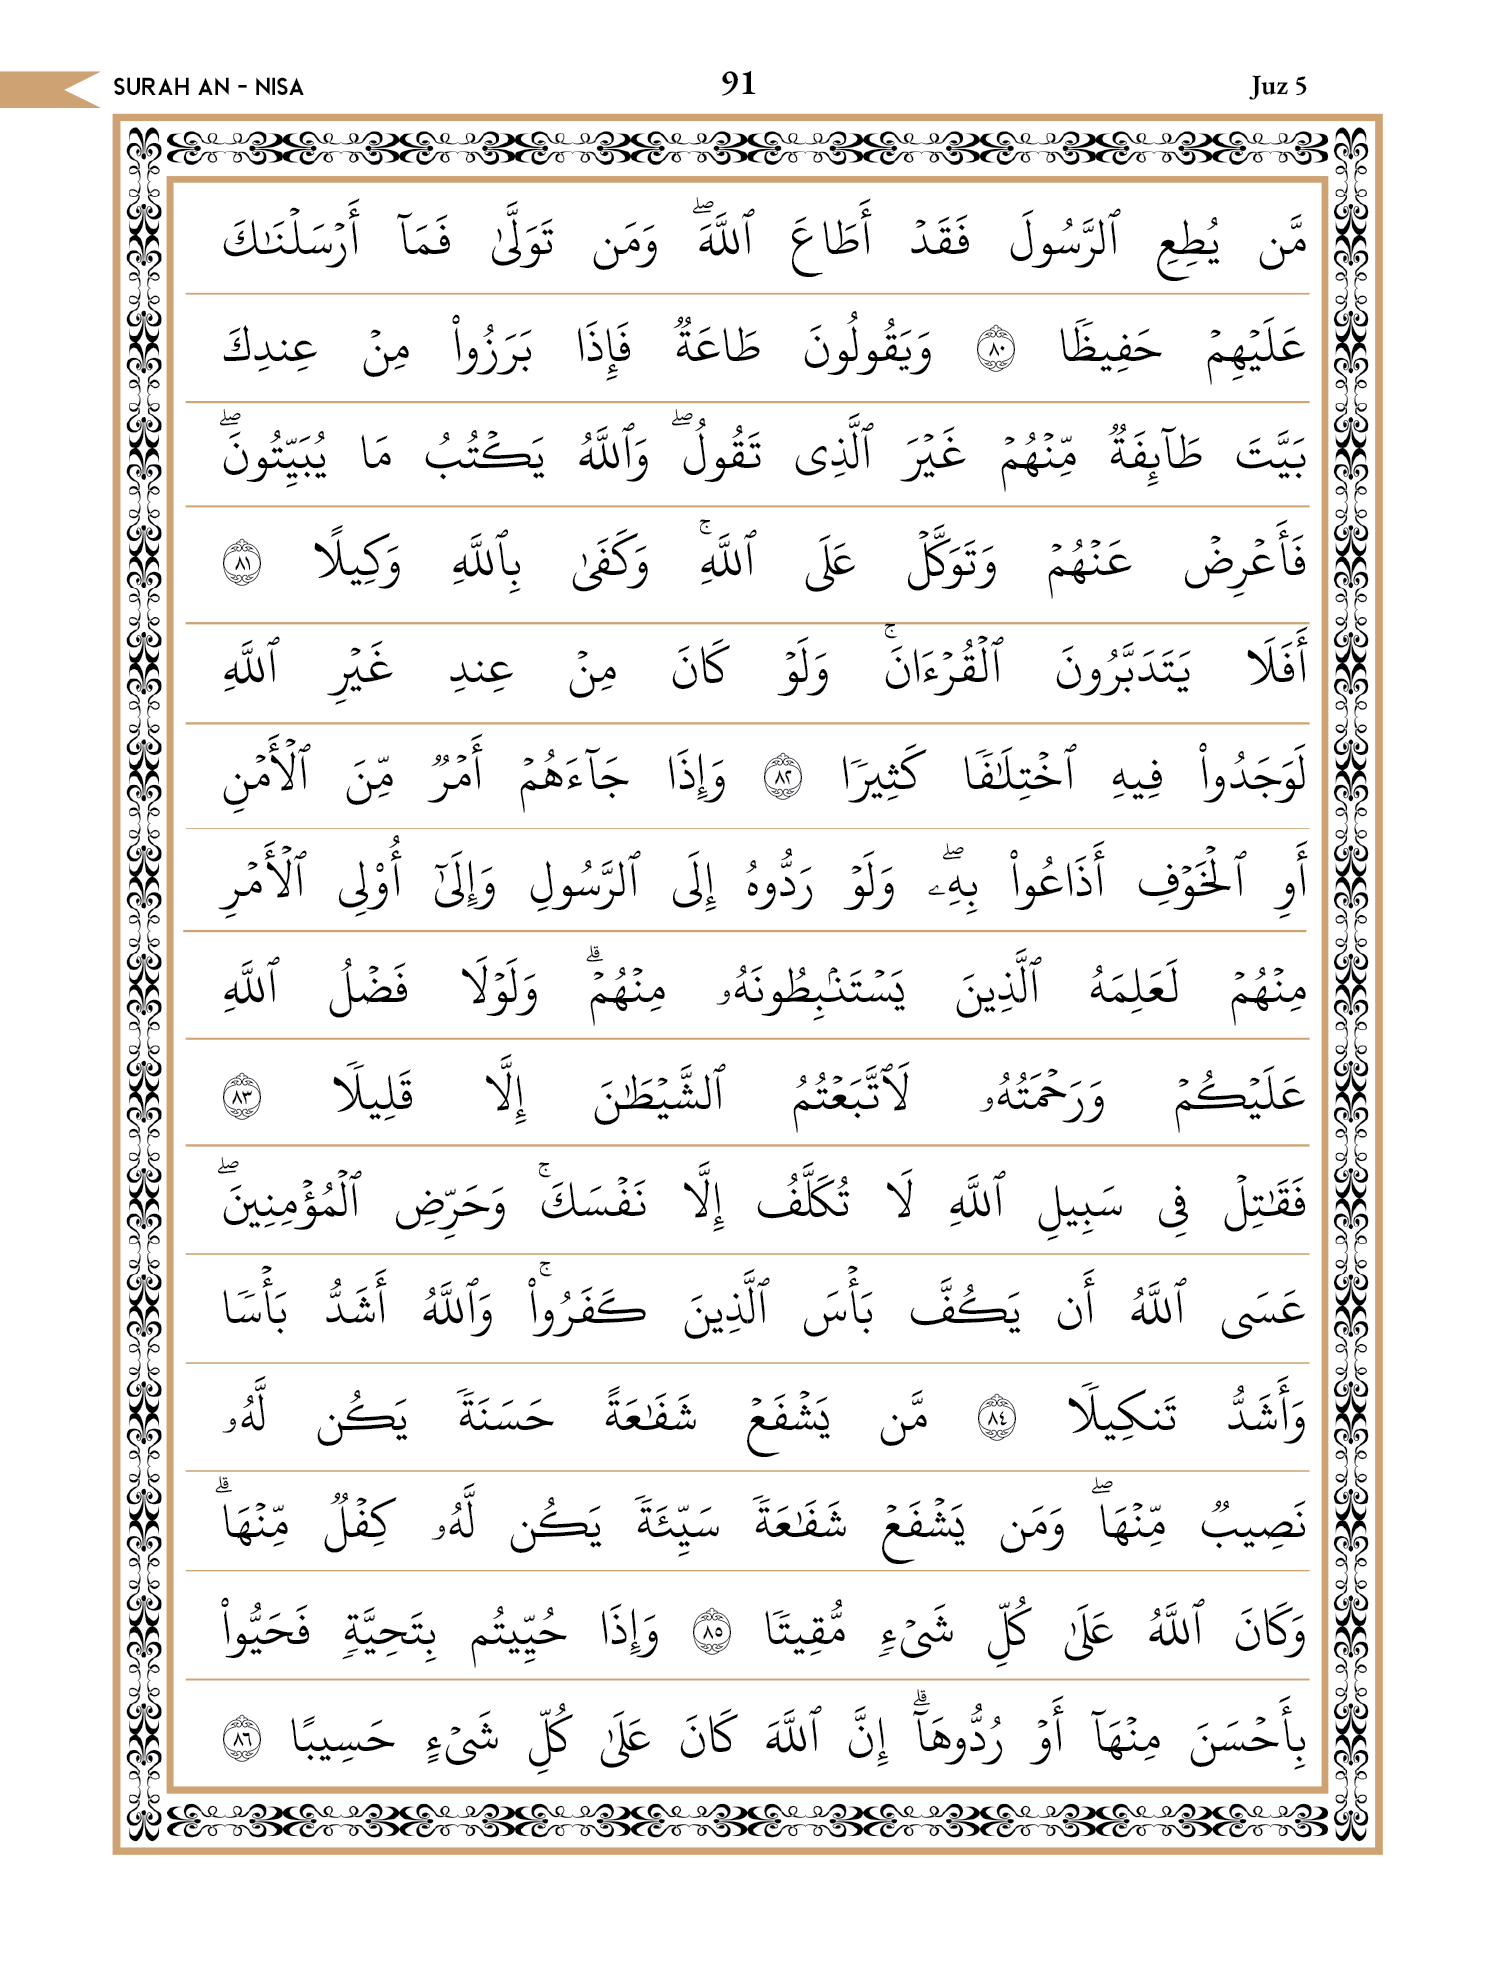 SURAH AN - NISA 91 Juz 5
مَّن يُطِعِ ٱلرَّسُولَ فَقَدۡ أَطَاعَ ٱللَّهَۖ وَمَن تَوَلَّىٰ فَمَآ أَرۡسَلۡنَٰكَ
عَلَيۡهِمۡ حَفِيظٗا ٨٠ وَيَقُولُونَ طَاعَةٞ فَإِذَا بَرَزُواْ مِنۡ عِندِكَ
بَيَّتَ طَآئِفَةٞ مِّنۡهُمۡ غَيۡرَ ٱلَّذِي تَقُولُۖ وَٱللَّهُ يَكۡتُبُ مَا يُبَيِّتُونَۖ
فَأَعۡرِضۡ عَنۡهُمۡ وَتَوَكَّلۡ عَلَى ٱللَّهِۚ وَكَفَىٰ بِٱللَّهِ وَكِيلًا ٨١
أَفَلَا يَتَدَبَّرُونَ ٱلۡقُرۡءَانَۚ وَلَوۡ كَانَ مِنۡ عِندِ غَيۡرِ ٱللَّهِ
لَوَجَدُواْ فِيهِ ٱخۡتِلَٰفٗا كَثِيرٗا ٨٢ وَإِذَا جَآءَهُمۡ أَمۡرٞ مِّنَ ٱلۡأَمۡنِ
أَوِ ٱلۡخَوۡفِ أَذَاعُواْ بِهِۦۖ وَلَوۡ رَدُّوهُ إِلَى ٱلرَّسُولِ وَإِلَىٰٓ أُوْلِي ٱلۡأَمۡرِ
مِنۡهُمۡ لَعَلِمَهُ ٱلَّذِينَ يَسۡتَنۢبِطُونَهُۥ مِنۡهُمۡۗ وَلَوۡلَا فَضۡلُ ٱللَّهِ
عَلَيۡكُمۡ وَرَحۡمَتُهُۥ لَٱتَّبَعۡتُمُ ٱلشَّيۡطَٰنَ إِلَّا قَلِيلٗا ٨٣
فَقَٰتِلۡ فِي سَبِيلِ ٱللَّهِ لَا تُكَلَّفُ إِلَّا نَفۡسَكَۚ وَحَرِّضِ ٱلۡمُؤۡمِنِينَۖ
عَسَى ٱللَّهُ أَن يَكُفَّ بَأۡسَ ٱلَّذِينَ كَفَرُواْۚ وَٱللَّهُ أَشَدُّ بَأۡسٗا
وَأَشَدُّ تَنكِيلٗا ٨٤ مَّن يَشۡفَعۡ شَفَٰعَةً حَسَنَةٗ يَكُن لَّهُۥ
نَصِيبٞ مِّنۡهَاۖ وَمَن يَشۡفَعۡ شَفَٰعَةٗ سَيِّئَةٗ يَكُن لَّهُۥ كِفۡلٞ مِّنۡهَاۗ
وَكَانَ ٱللَّهُ عَلَىٰ كُلِّ شَيۡءٖ مُّقِيتٗا ٨٥ وَإِذَا حُيِّيتُم بِتَحِيَّةٖ فَحَيُّواْ
بِأَحۡسَنَ مِنۡهَآ أَوۡ رُدُّوهَآۗ إِنَّ ٱللَّهَ كَانَ عَلَىٰ كُلِّ شَيۡءٍ حَسِيبًا ٨٦